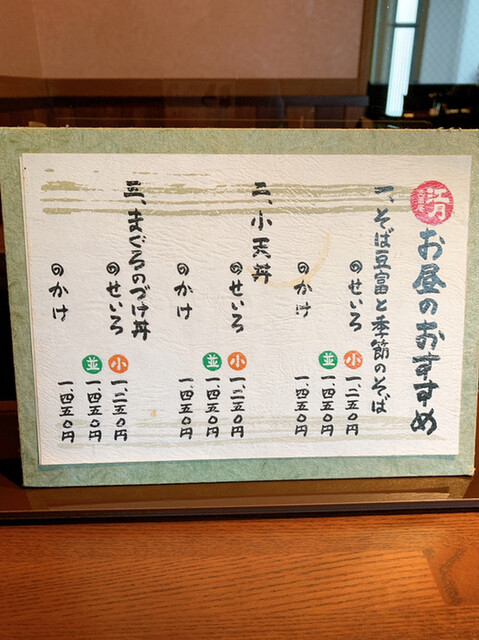 江月
お昼のおすすめ
一、そば豆富と季節のそば
のせいろ 小 一、二五〇円
並 一、四五〇円
のかけ 一、四五〇円
二、小天丼
のせいろ 小 一、二五〇円
並 一、四五〇円
のかけ 一、四五〇円
三、まぐろのづけ丼
のせいろ 小 一、二五〇円
並 一、四五〇円
のかけ 一、四五〇円